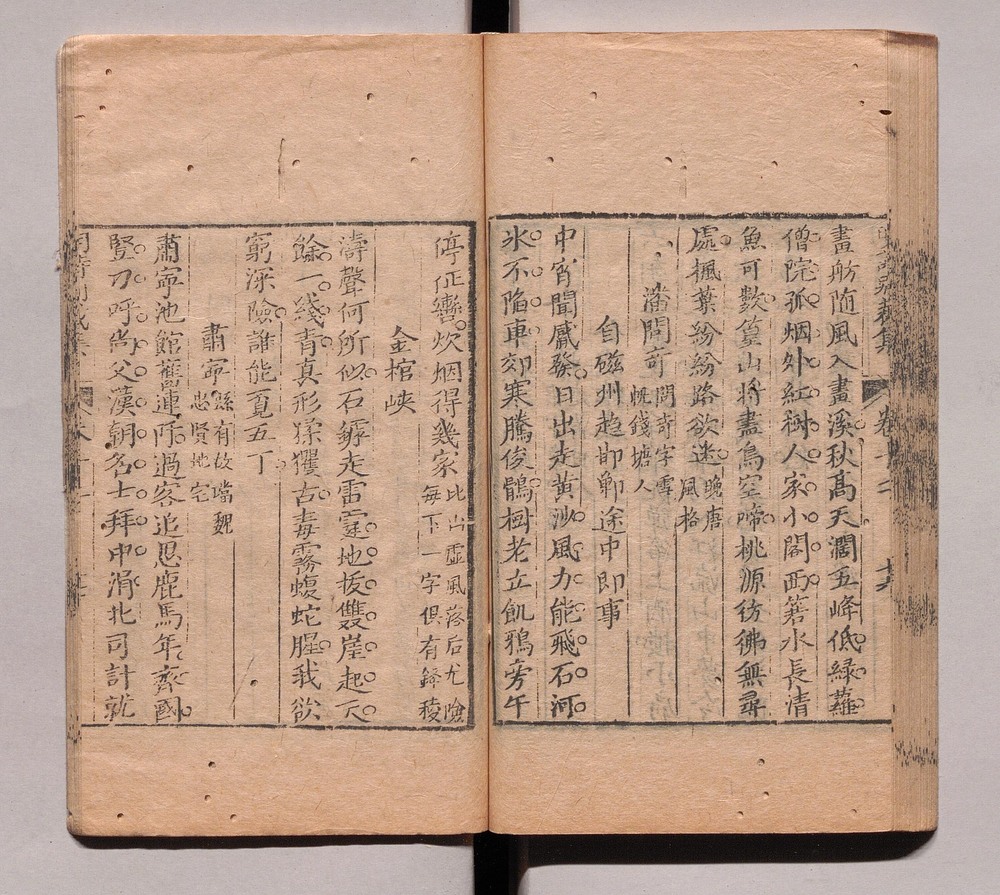 畫舫随風入畫溪秋高天濶五峰低綠蘿
僧院孤烟外紅樹人家小閣西箬水長清
魚可數篁山將盡鳥空啼桃源彷彿無尋
處楓葉紛紛路欲迷晚唐
風格
潘問奇問奇字雪
帆錢塘人
自磁州趋邯鄲途中即事
中宵聞觱發日出走黃沙風力能飛石河
氷不陷車郊寒騰俊鶻樹老立飢鴉旁午
停征轡炊烟得幾家比山虛風落后尤險
每下一字俱有鋒稜
金棺峽
濤聲何所似石鏬走雷霆地拔雙崖起天
餘一綫青真形猱玃古毒霧蝮蛇腥我欲
窮深險誰能覓五丁
肅寧縣有故璫魏
忠賢地宅
肅寧池館舊連阡過客追思鹿馬年齊國
豎刀呼尚父漢朝名士拜中涓北司計就